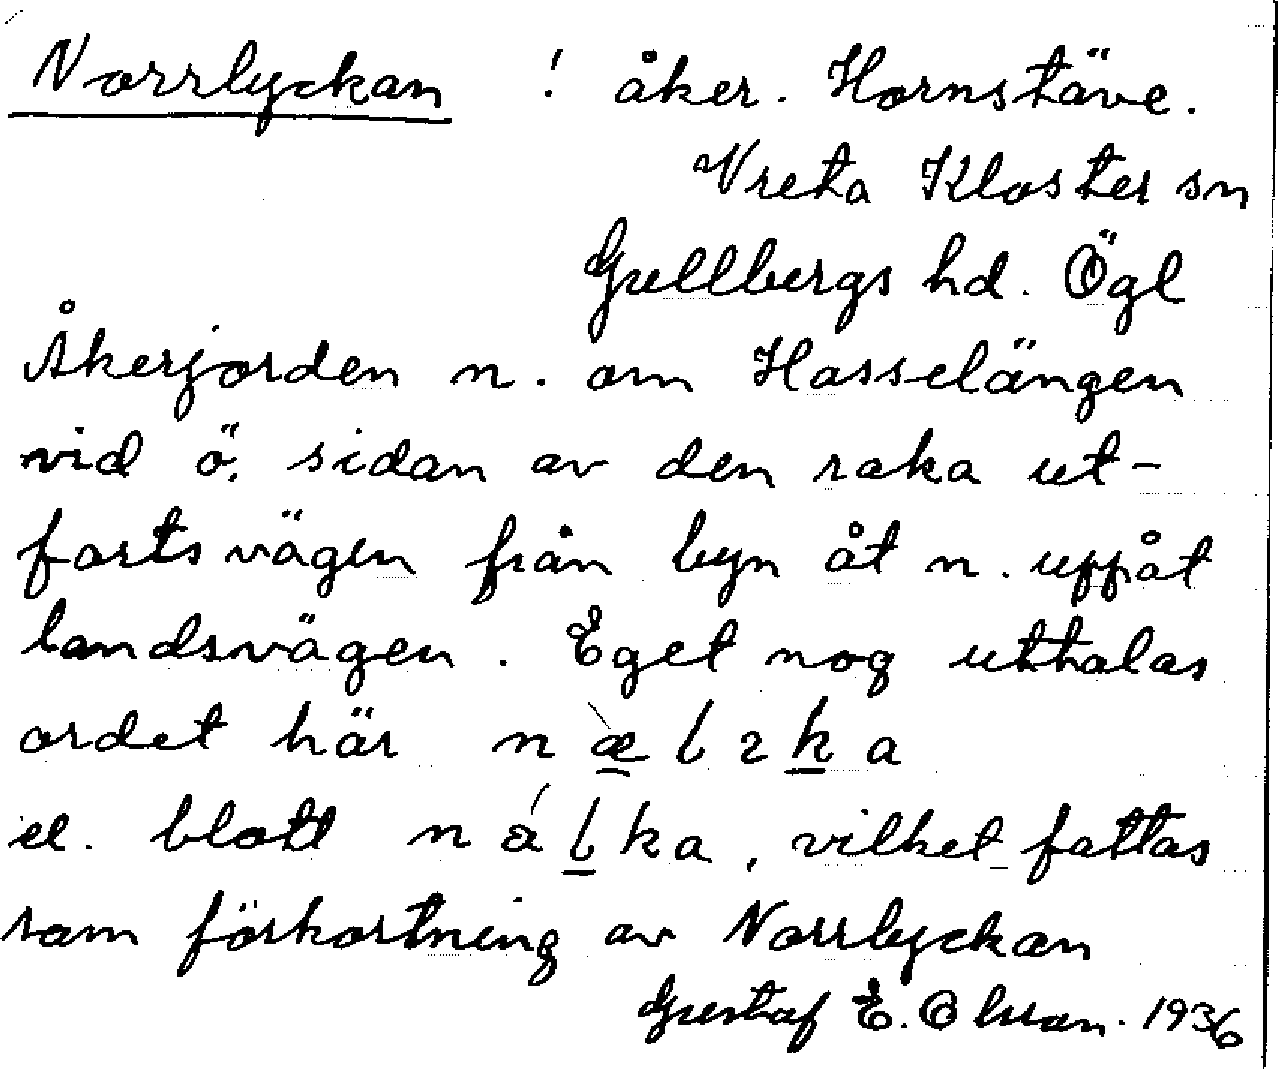 Norrlyckan ! åker. Hornstäve.
Vreta Kloster sn
Gullbergs hd. Ögl
Åkerjorden n. om Hasselängen
vid ö. sidan av den raka ut-
fartsvägen från byn åt n. uppåt
landsvägen. Eget nog uttalas
ordet här
el. blott, vilket fattas
som förkortning av Norrlyckan
Gustaf E. Olsson. 1936